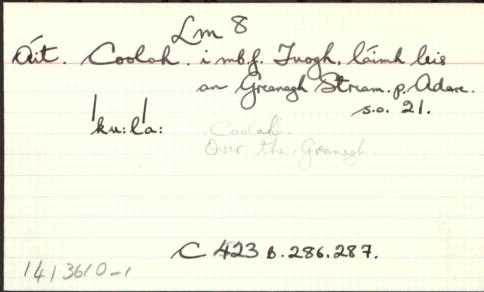 Lm 8
Áit. Coolah. i mb.f. Tuogh, láimh leis
an Greanagh Stream. p. Adare.
s.o. 21.
ˈku:ˈla:
Coolah.
Over the Greanagh.
C 423 B. 286. 287.
1413610-1